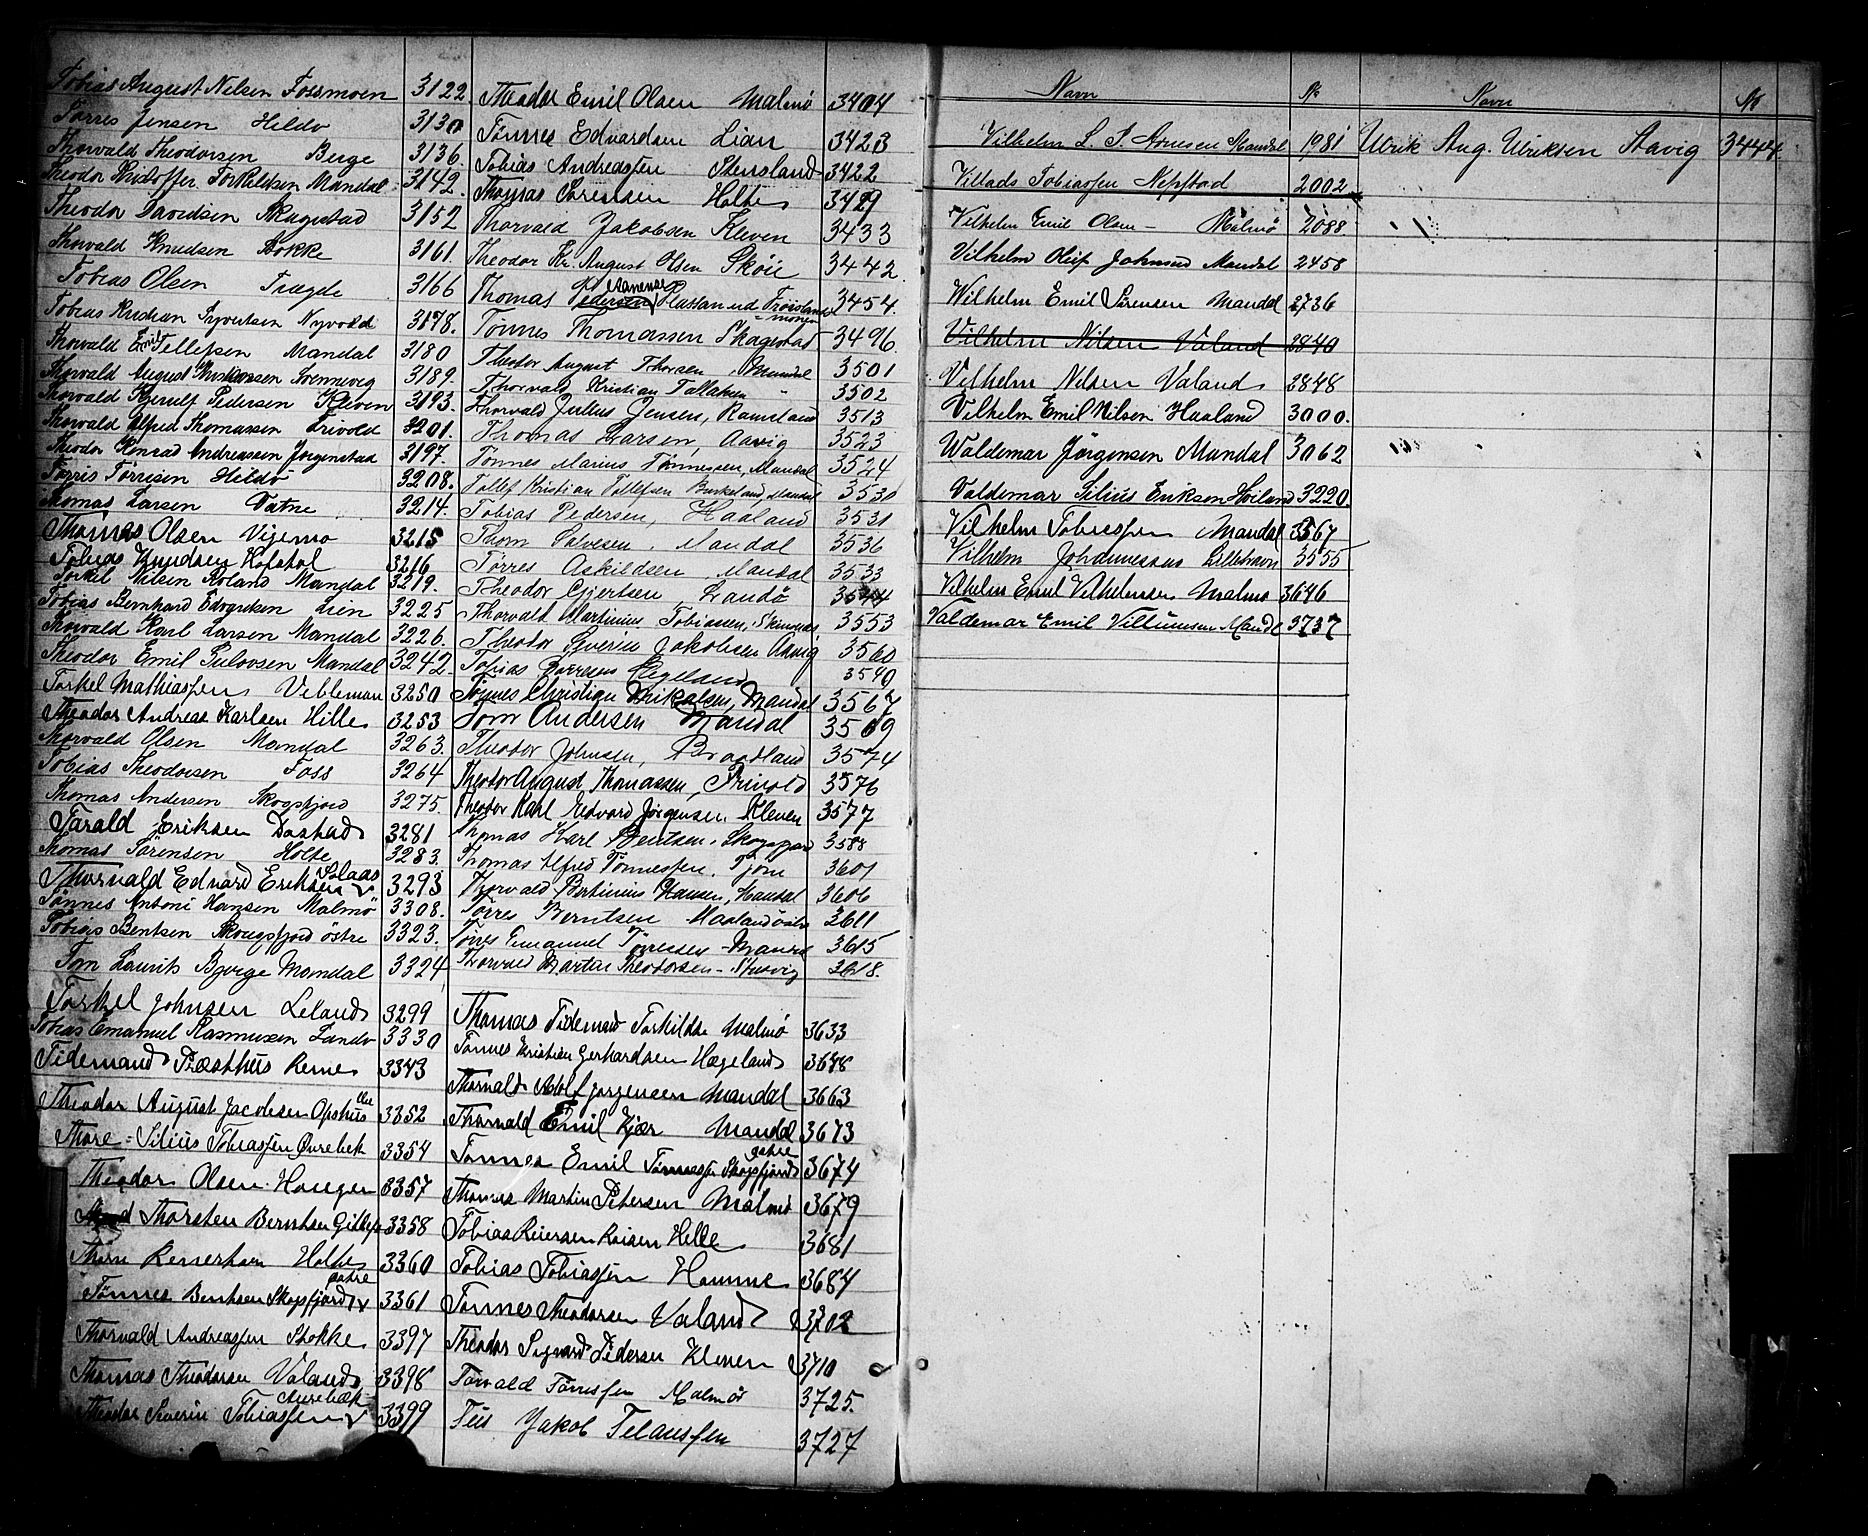 Tobias August Nilsen Fossmoen 3122
Torres Jensen Hildo 3130
Thorvald Theodorsen Berge 3136.
Theodor Torkildsen Mandal 3142.
Theodor Davidsen Skagestad 3152
Thorvald Knudsen Stokke 3161.
Tobias Olsen Trægde 3166
Tobias Kristian Syvertsen Nyvold 3178.
Thorvald Emil Tellefsen Mandal 3180
Thorvald August Svennevig 3189.
Thorvald Pedersen Kleven 3193.
Thorvald Alfred Thomassen Frivold 3201.
Theodor Konrad Andreassen Jørgenstad 3197.
Torris Tørrisen Hildo 3208.
Thomas Larsen Vatne 3214.
Thomas Olsen Vigemo 3215
Tobias Knudsen 3216
Torkel Nilsen Roland Mandal 3219.
Tobias Bernhard Edvardsen Lien 3225
Thorvald Karl Larsen Mandal 3226.
Theodor Emil Mandal 3242.
Torkel Mathiassen Vibleman 3250
Theodor Andreas Karlsen Hille 3253
Thorvald Olsen Mandal 3263.
Tobias Theodorsen Foss 3264
Thomas Andersen Skogsfjord 3275.
Tarald Eriksen Dastad 3281
Thomas Sørensen Holte 3283.
Thorvald Edvard Eriksen Blaas 3293
Tønnes Antoni Hansen Malmø 3308.
Tobias Bentsen Skougsfjord østre 3323.
Tom Laurits Bjerge Mandal 3324
Torkel Johnsen Leland 3299
Tobias Emanuel Rasmussen Landø 3330
Tidemand Præsthus Reme 3343
Theodor August Jacobsen Opshus 3352
Thore Silius Tobiassen Øvrebæk 3354
Theodor Olsen Haugen 3357
Thorsten Berntsen 3358
Thom Reiersen Holte 3360
østre
Tønnes Bentsen Skogsfjord 3361
Thorvald Andreassen Stokke 3397
Thomas Theodorsen Valand 3398
Øvrebæk
Theodor Severin Tobiassen 3399
Theodor Emil Olsen Malmø 3404
Tønnes Edvardsen Lian 3423
Tobias Andreassen Stensland 3422
Thomas Sørensen Holte 3429
Thorvald Jakobsen Kleven 3433
Theodor Kr. August Olsen Skøie 3442
Thomas Pedersen Plassan ved Frøislandsmonen 3454.
Tønnes Thomassen Skagestad 3496.
Theodor August Thorsen Mandal 3501
Thorvald Kristian Tallaksen " 3502
Thorvald Julius Jensen, Ramsland 3513
Thomas Larsen, Aavig 3523
Tønnes Marius Tønnessen, Mandal 3524
Tellef Kristian Tellefsen Birkeland, Mandal 3530
Tobias Pedersen, Haaland 3531
Thom Salvesen, Mandal 3536
Tørres Askildsen Mandal 3533
Theodor Gjertsen Landø 3544
Thorvald Martinius Tobiassen, 3553
Theodor Severin Jakobsen Aavig 3560
Tobias Hegeland 3590
Tønnes Christian Mikalsen, Mandal 3567
Tom Andersen Mandal 3569
Theodor Johnsen, Braadland 3574
Theodor August Thomassen, Frivold 3576
Theodor Karl Edvard Jørgensen Kleven 3577
Thomas Karl Bentsen, Skogsfjord 3588
Thomas Alfred Tønnessen, Tjom 3601
Thorvald Bertinius Hansen, Mandal 3606
Tørres Berntsen Haaland østre 3611
Tørres Emanuel Tørresen Mandal 3615
Thorvald Martin Theodorsen 3618.
Thomas Tidemand Torkildsen Malmø 3633
Tønnes Kristian Gerhardsen Hægeland 3648
Thorvald Adolf Jørgensen Mandal 3663
Thorvald Emil Kjær Mandal 3673
østre
Tønnes Emil Tønnessen Skogsfjord 3674
Thomas Martin Petersen Malmø 3679
Tobias Reiersen Hille 3681
Tobias Tobiassen Homme 3684
Tønnes Theodorsen Valand 3702
Theodor Sigvard Pedersen Kleven 3710
Torvald Tørresen Malmø 3725.
Tiis Jakob Telaussen 3727
Navn No Navn No
Vilhelm L. S. Arnesen Mandal 1981 Ulrik Aug. Ulriksen Aavig 3444.
Villads Tobiassen Nepstad 2002
Vilhelm Emil Olsen - Malmø 2088
Vilhelm Oluf Johnsen Mandal 2458
Wilhelm Emil Sørensen Mandal 2736
Vilhelm Nilsen Valand 2840
Vilhelm Nilsen Valand 2848
Vilhelm Emil Nilsen Haaland 3000.
Waldemar Jørgensen Mandal 3062
Valdemar Silius Eriksen Høiland 3220.
Vilhelm Tobiassen Mandal 3567
Vilhelm Johannessen Lillebroen 3555
Vilhelm Emil Vilhelmsen Malmø 3646
Valdemar Emil Villumsen Mandl 3737